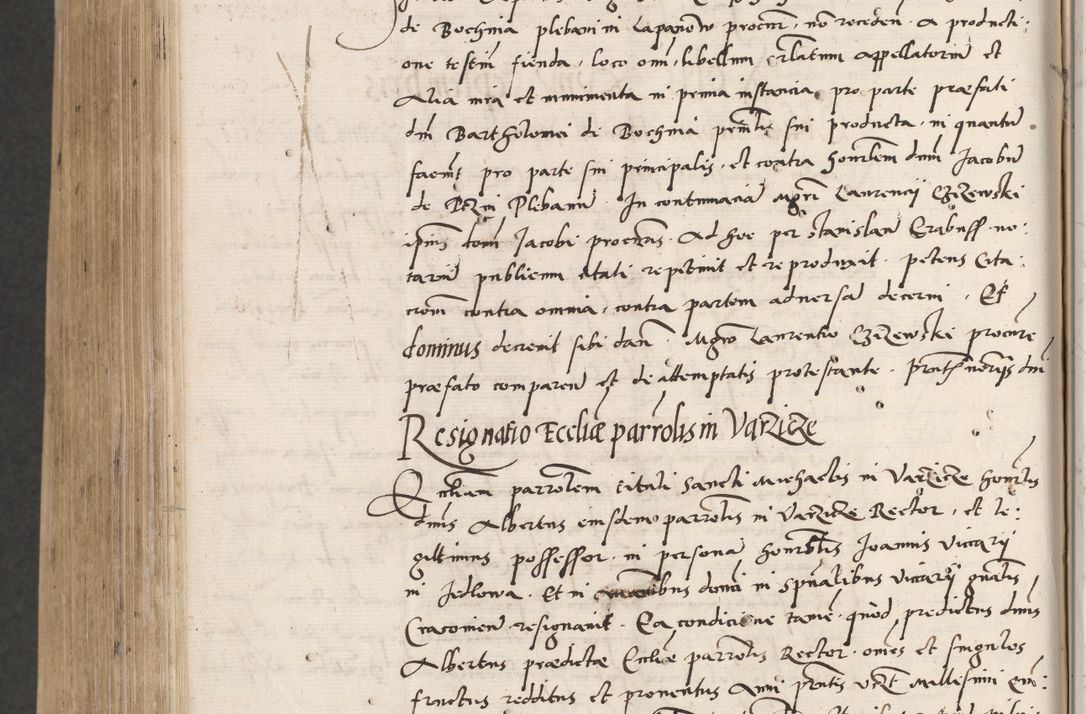 de Bochnia plebani in Lapanow procur. no receden. A producti:
one testiu fienda, loco om. libellum erlatum Appellatoriu et
Alia iura et munimenta in prima instancia, pro parte præfati
dni Bartholomei de Bochnia pentis sui producta, in quantu
faciunt pro parte sui principalis, et contra honorlem dnm Jacobu
de Plebanu. In contumacia Mgri Laurencii Czizewski
ipius domi Jacobi procuris. Ad hoc per Stanislau Grabuss no:
tariu publicum citati repetiuit et reproduxit. Petens Cita:
cionem contra omnia, contra partem aduersa decerni. Et
dominus decreuit sibi dari. Mgro Laurentio Czizewski procure
præfato comparen et de attemptatis protestante. Pntibus dni
Resignatio Eccliæ parrolis in Varzicze
Eccliam parrolem tituli Sancti Michaelis in Varzicze honorlis
dnus Albertus eiusdem parrolis in Varzicze Rector, et le:
gittimus possessor, in persona honorblis Joannis Viccarii
in Jedlowa. Et in manibus domi in Spualibus Viccarii gnalis
Cracouien resignauit. Ea condicione tame, quod, predictus dnus
Albertus prædictæ Eccliæ parrolis Rector, omes et singulos
fructus redditus et prouentus Anni pntis vizt Millesimi Quin: